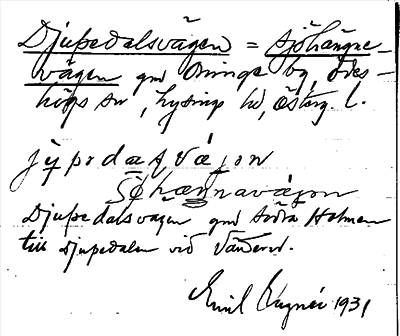 Djupedalsvägen = Sjöhängne-
vägen gm Orringe by, Ödes-
högs sn, Lysings hd, Österg. l.
jųpədasvágən
Djupedalsvägen gm Södra Holmen
till Djupedalen vid Vättern.
Emil 1931